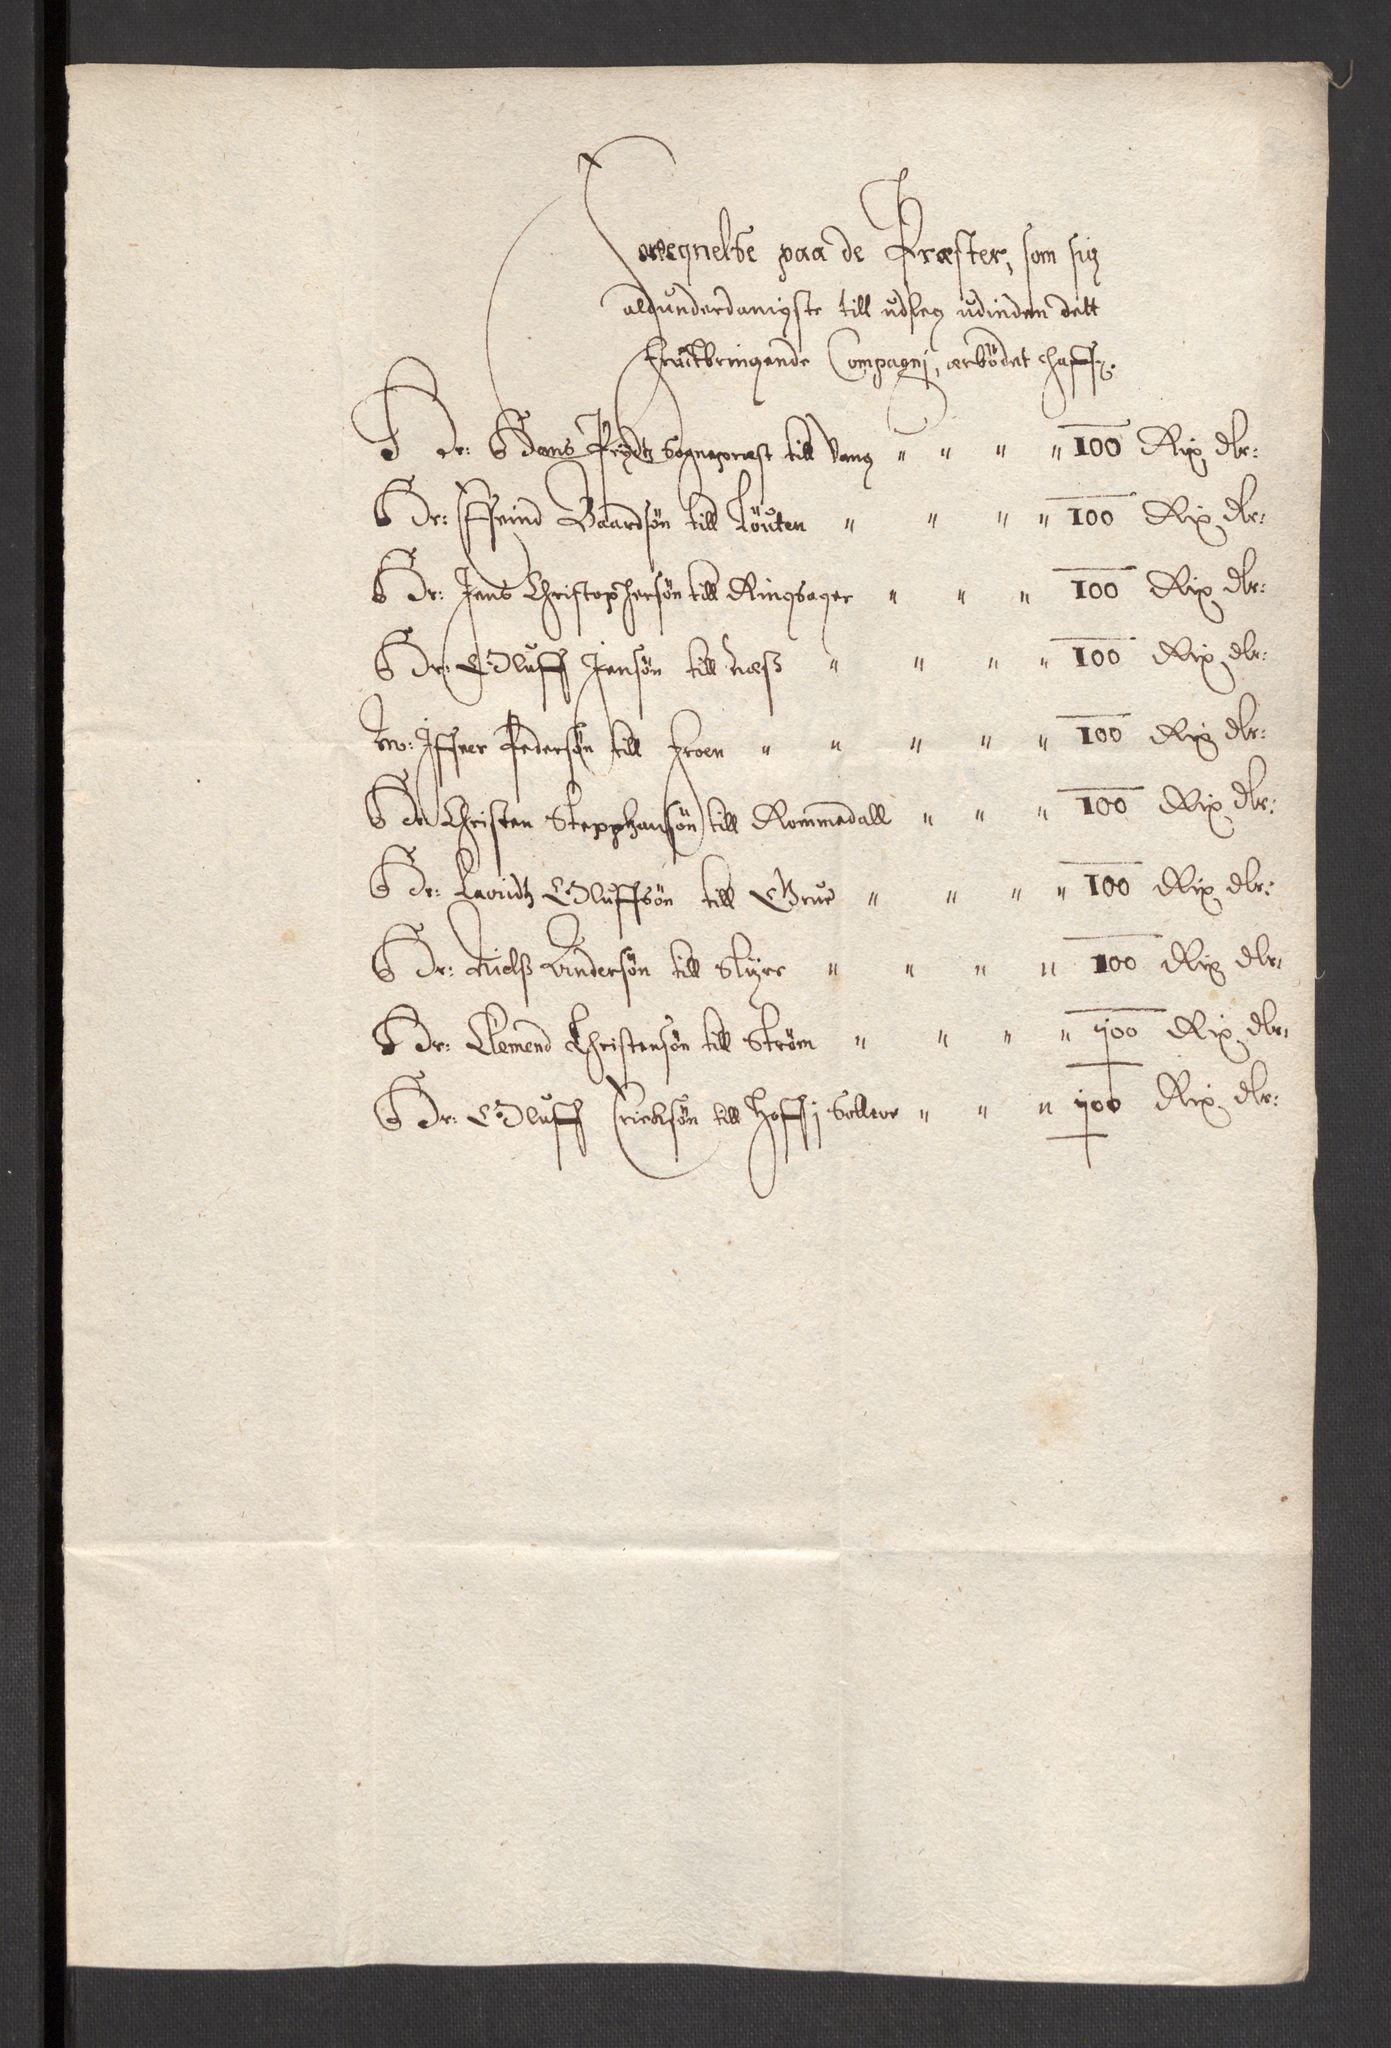 Fortegnelse paa de Præster, som sig
aldunderdanigste till udleg udinden dett
fructbringende Compagni, ærbödet haffr.
Hr: Hans Sognepræst till Vang " " " " 100 Rix dlr:
Hr: Effvind Baardsön till Löuten " " " " 100 Rix dlr:
Hr: Jens Christophersön till Ringsager " " " 100 Rix dlr:
Hr: Oluff Jensön till Næss " " " " 100 Rix dlr:
Iffver Pedersön till Froen " " " " " 100 Rix dlr:
Hr Christen Stephansön till Rommedall " " " 100 Rix dlr:
Hr: Lauridtz Oluffsön till Grue " " " " 100 Rix dlr:
Hr: Nielss Andersön till Slyre " " " " 100 Rix dlr:
Hr: Clemend Christensön till Ström " " " " 100 Rix dlr:
Hr: Oluff Ericksön till Hoff i Solleør " " " 100 Rix dlr: